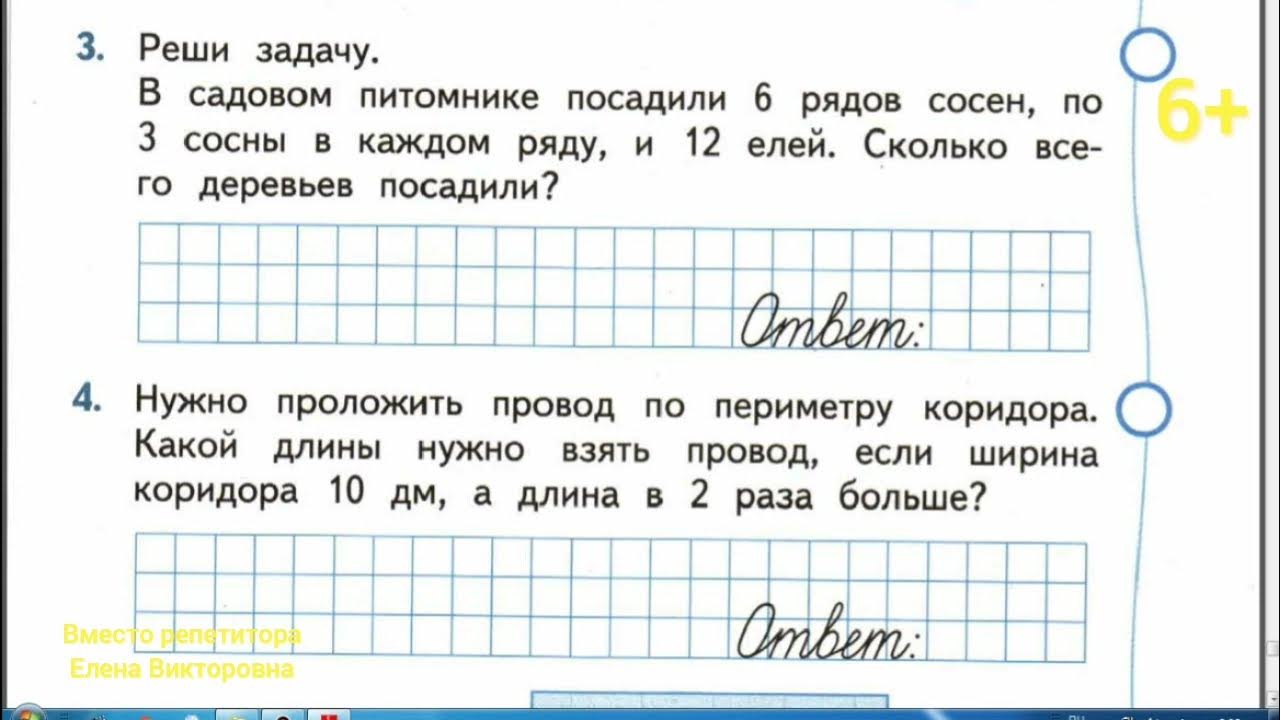 3. Реши задачу.
В садовом питомнике посадили 6 рядов сосен, по
3 сосны в каждом ряду, и 12 елей. Сколько все-
го деревьев посадили?
6+
Ответ:
4. Нужно проложить провод по периметру коридора.
Какой длины нужно взять провод, если ширина
коридора 10 дм, а длина в 2 раза больше?
Ответ:
Вместо репетитора
Елена Викторовна